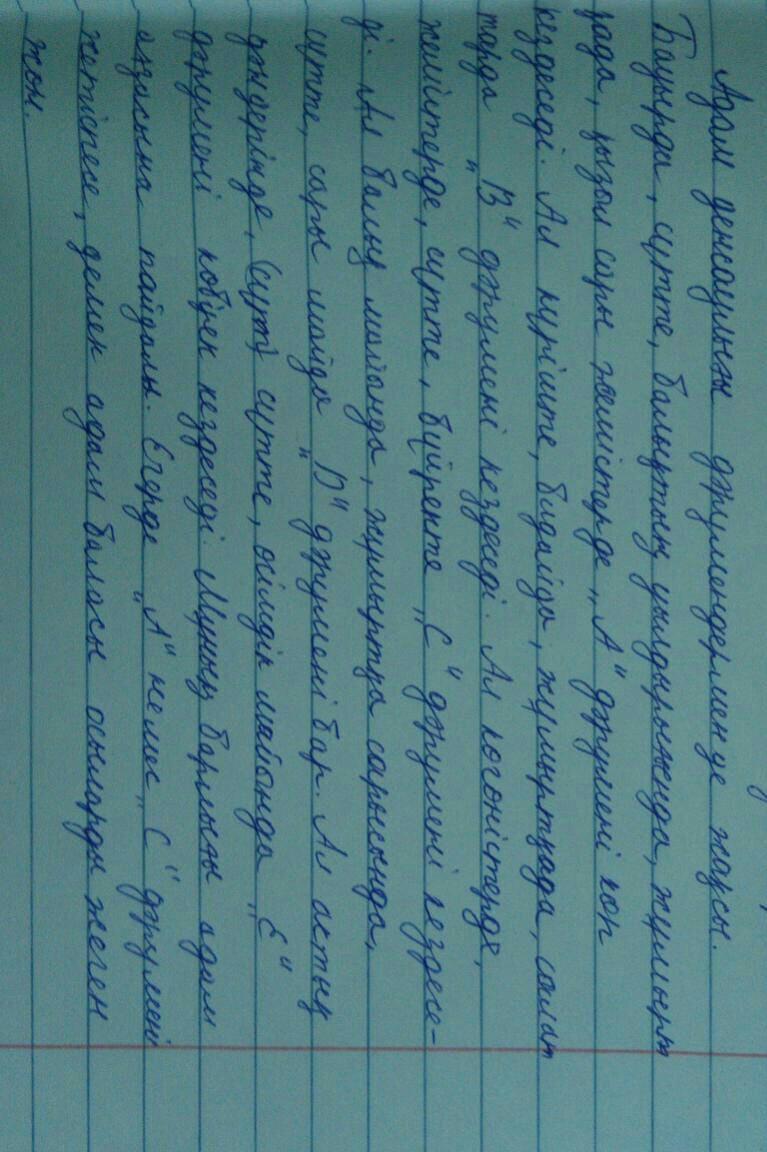 Адам денсаулығы дәрумендермен де жақсы.
Бауырда, сүтте, балықтың уылдырығында, жұмырт
қада, қызыл сары жемістерде „А" дәрумені көп
кездеседі. Ал күрішта, бидайда, жұмыртқада, салат
тарда „В" дәрумені кездеседі. Ал көгөністерде,
жемістерде, сүтте, бүйректе „С" дәрумені кездесе-
ді. Ал балық майында, жұмыртқа сарысында,
сүтте, сары майда „D" дәрумені бар. Ал астық
дәндерінде, (сүт) сүтте, өсімдік майында „Е"
дәрумені көбірек кездеседі. Мұның барлығы адам
ағзасына пайдалы. Егерде „А" немес „С" дәрумені
жетіспесе, демек адам баласы осыларды жеген
жоқ.